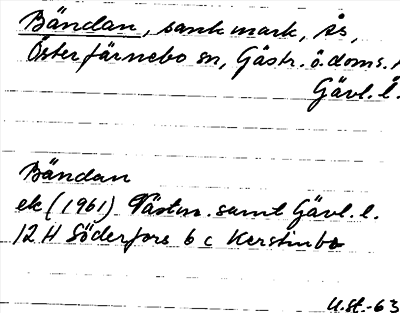 Bändan, sank mark, Ås,
Österfärnebo sn, Gästr. ö. doms.
Gävl. l.
Bändan
ek (1961) Västm. samt Gävl. l.
12 H Söderfors 6 c Kerstinbo
U.St.-63